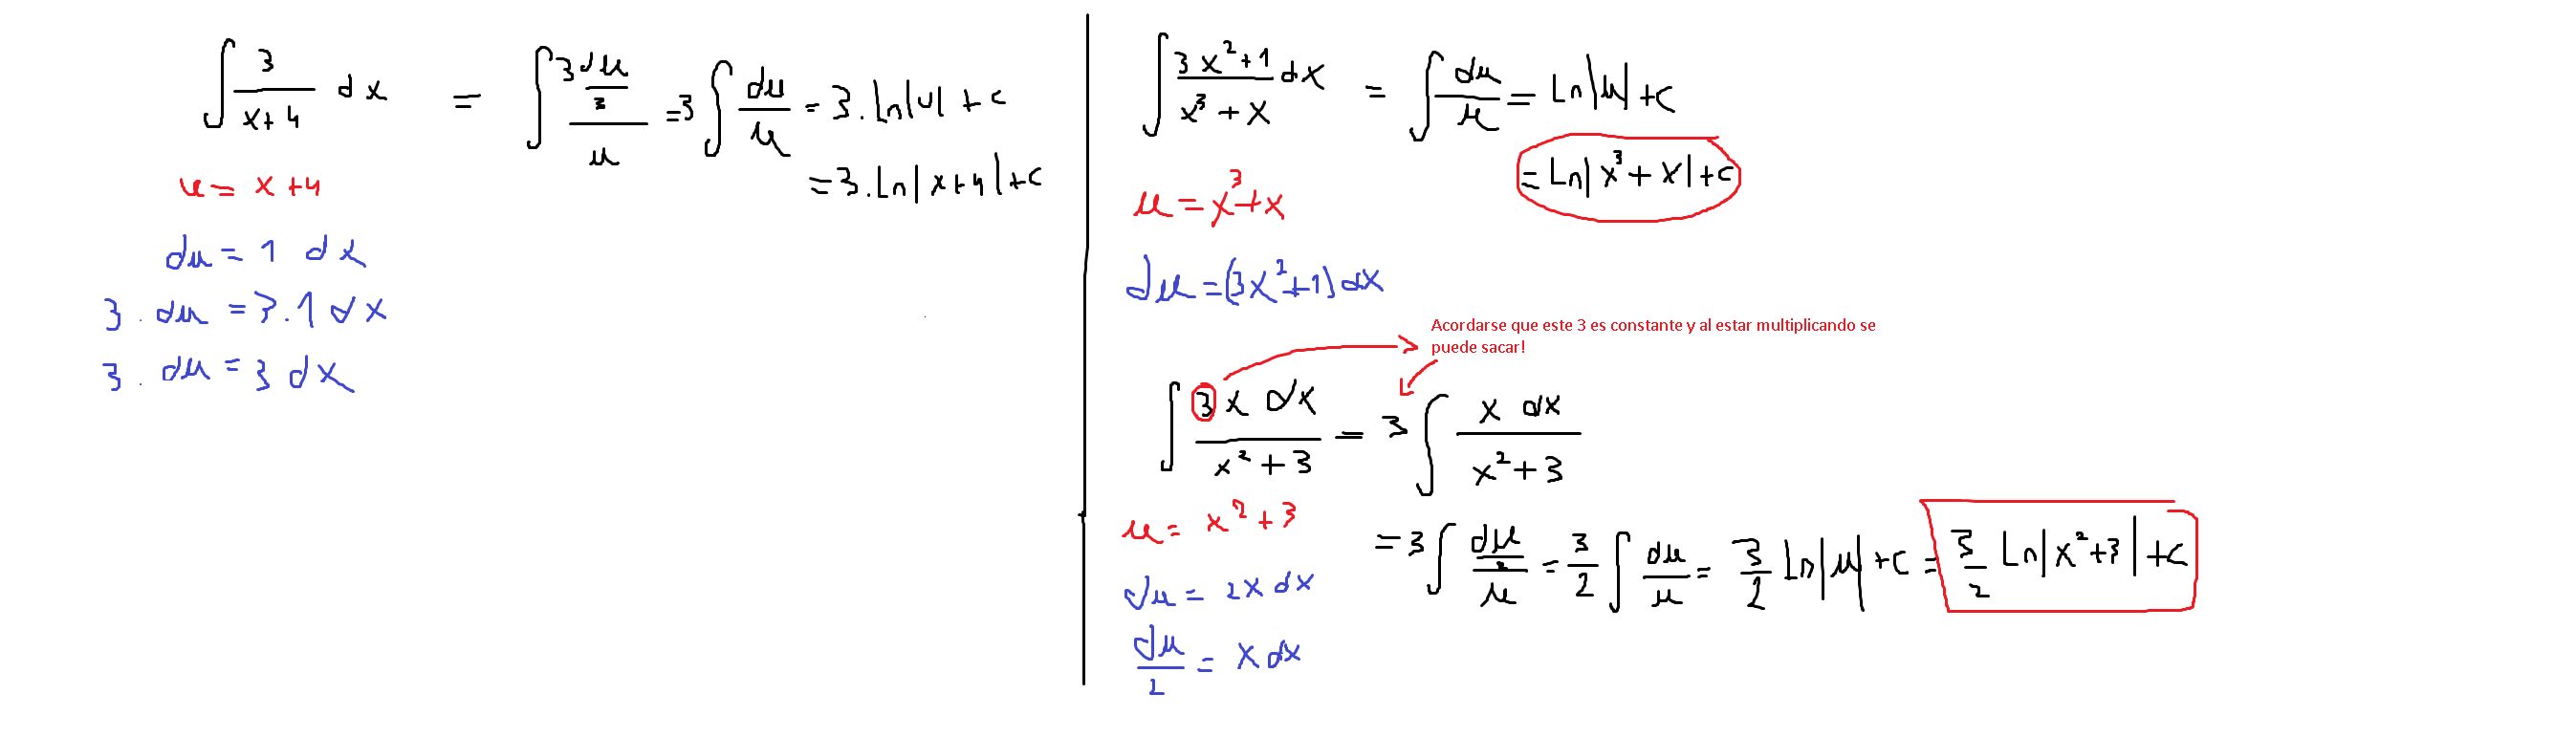 ∫ 3/(x+4) dx = ∫ (3 du/3)/u = 3 ∫ du/u = 3. Ln|u| + c
= 3. Ln|x+4| + c
u = x+4
du = 1 dx
3 . du = 3.1 dx
3 . du = 3 dx
∫ (3x²+1)/(x³+x) dx = ∫ du/u = Ln|u| + c
= Ln|x³+x| + c
u = x³+x
du = (3x²+1) dx
Acordarse que este 3 es constante y al estar multiplicando se
puede sacar!
∫ (3x dx)/(x²+3) = 3 ∫ (x dx)/(x²+3)
u = x²+3
= 3 ∫ (du/2)/u = 3/2 ∫ du/u = 3/2 Ln|u| + c = 3/2 Ln|x²+3| + c
du = 2x dx
du/2 = x dx